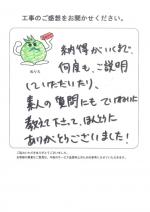 工事のご感想をお聞かせください。
納得がいくまで、
何度も、ご説明
していただいたり、
素人の質問にもていねいに
教えて下さって、ほんとうに
ありがとうございました！